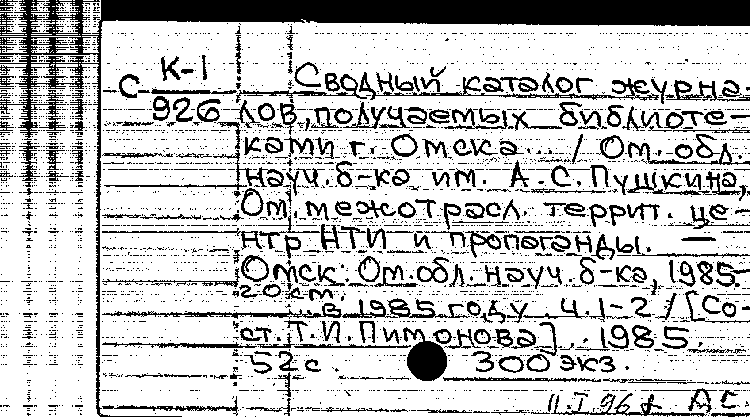 К-1
С 926
Сводный каталог журна-
лов, получаемых библиоте-
ками г. Омска... / Ом. обл.
науч. б-ка им. А.С. Пушкина,
Ом. межотрасл. террит. це-
нтр НТИ и пропаганды. —
Омск: Ом. обл. науч. б-ка, 1985-
20 см.
...в 1985 году. Ч.1-2 / [Со-
ст. Т.И. Пимонова]. . 1985.
52 с. 300 экз.
11.I 96 АС